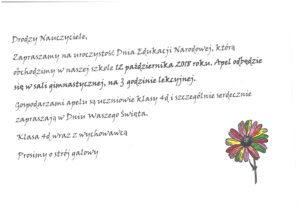 Drodzy Nauczyciele,
Zapraszamy na uroczystość Dnia Edukacji Narodowej, którą
obchodzimy w naszej szkole 12 października 2018 roku. Apel odbędzie
się w sali gimnastycznej, na 3 godzinie lekcyjnej.
Gospodarzami apelu są uczniowie klasy 4d i szczególnie serdecznie
zapraszają w Dniu Waszego Święta.
Klasa 4d wraz z wychowawcą
Prosimy o strój galowy